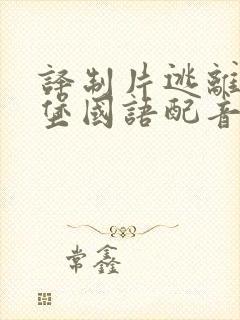 译制片逃離
堡國語配音
常鑫